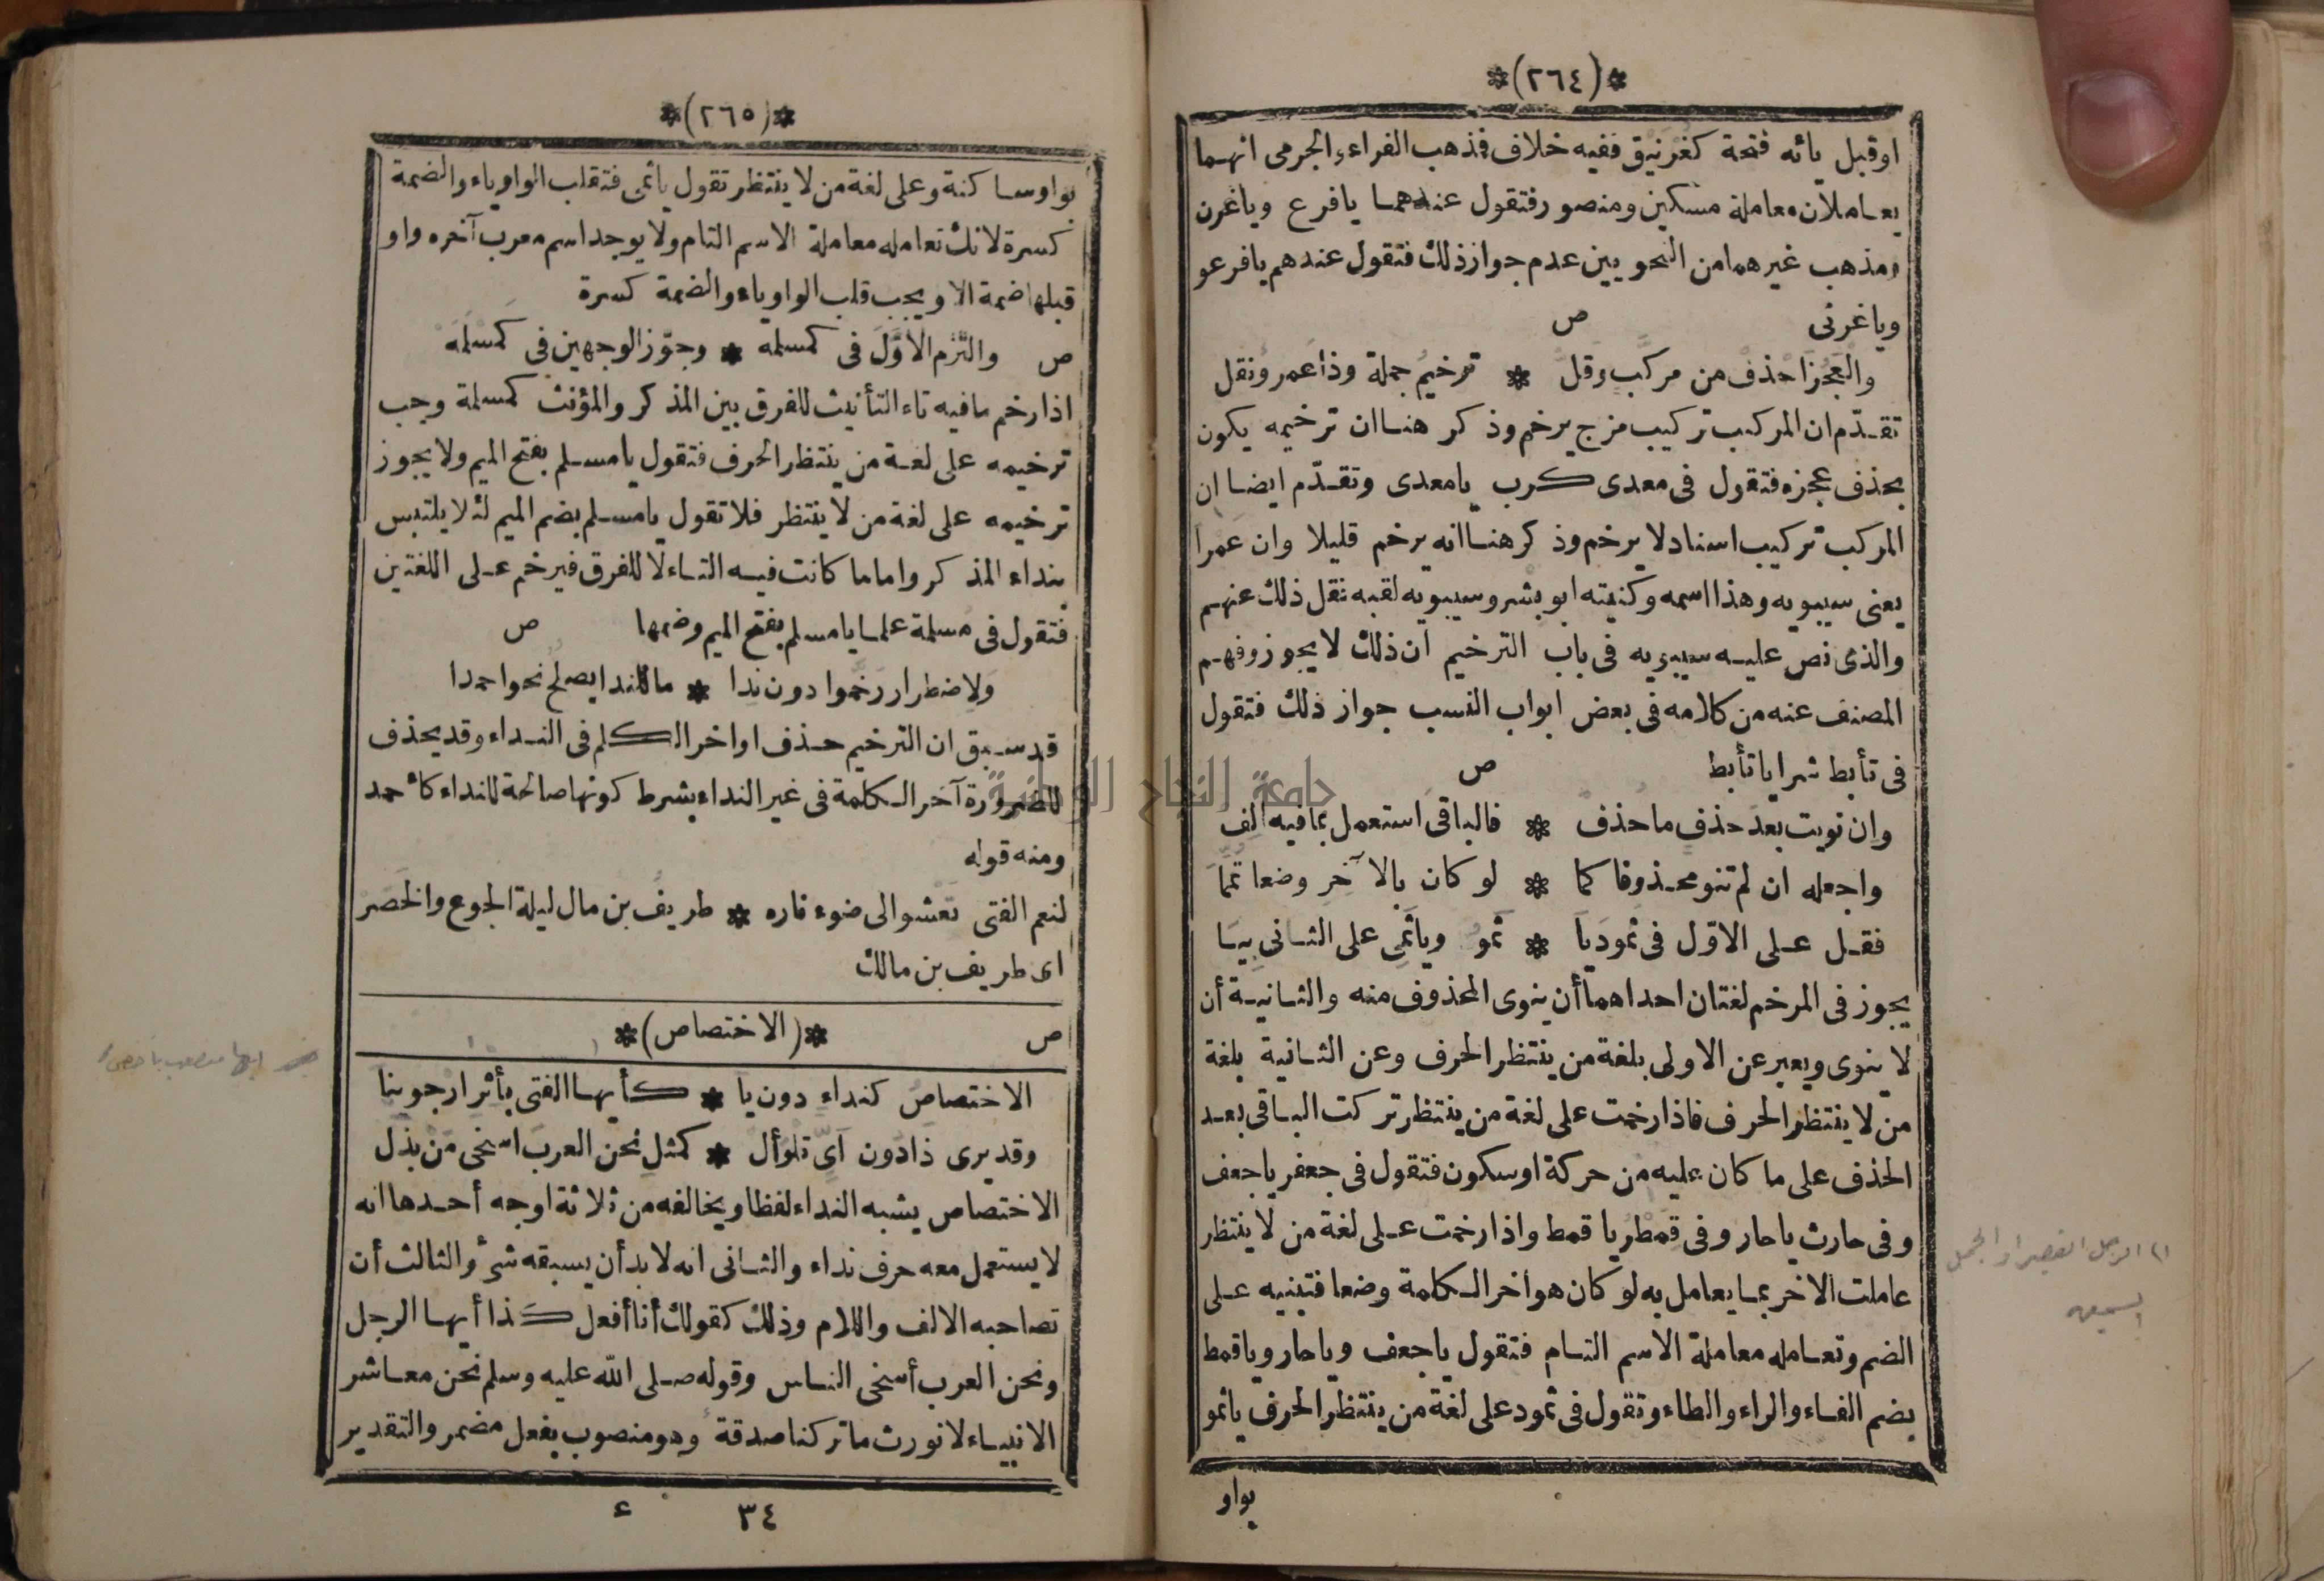 *(٢٦٤)*
او قبل يائه فتحة كغرنيق ففيه خلاف فذهب الفراء والجرمى انهما
يعاملان معاملة مسكين ومنصور فتقول عندهما يا فرع ويا غرن
ومذهب غيرهما من النحويين عدم جواز ذلك فتقول عندهم يا فرعو
ويا غرنى ص
والعَجُزَ احْذفْ من مركَّب وقلَّ * ترخيمُ جملة وذا عمرو نقل
تقدّم ان المركب تركيب مزج يرخم وذكر هنا ان ترخيمه يكون
بحذف عجزه فتقول فى معدى كرب يا معدى وتقدّم ايضا ان
المركب تركيب اسناد لا يرخم وذكر هنا انه يرخم قليلا وان عمرا
يعنى سيبويه وهذا اسمه وكنيته ابو بشر وسيبويه لقبه نقل ذلك عنهم
والذى نص عليه سيبويه فى باب الترخيم ان ذلك لا يجوز وفهم
المصنف عنه من كلامه فى بعض ابواب النسب جواز ذلك فتقول
فى تأبط شرا يا تأبط ص
وإن نويت بعدَ حذفٍ ما حُذفْ * فالباقىَ استعمل بما فيه أُلِفْ
واجعله ان لم تنو محذوفا كما * لو كان بالآخِرِ وضعا تُمِّمَا
فقل على الاوّل فى ثمودَ يا * ثمو ويا ثمى على الثانى بِيَا
يجوز فى المرخم لغتان احداهما أن ينوى المحذوف منه والثانية أن
لا ينوى ويعبر عن الاولى بلغة من ينتظر الحرف وعن الثانية بلغة
من لا ينتظر الحرف فاذا رخمت على لغة من ينتظر تركت الباقى بعد
الحذف على ما كان عليه من حركة او سكون فتقول فى جعفر يا جعف
وفى حارث يا حار وفى قمطر يا قمط واذا رخمت على لغة من لا ينتظر
عاملت الآخر بما يعامل به لو كان هو آخر الكلمة وضعا فتبنيه على
الضم وتعامله معاملة الاسم التام فتقول يا جعف ويا حار ويا قمط
بضم الفاء والراء والطاء وتقول فى ثمود على لغة من ينتظر الحرف يا ثمو
بواو
*(٢٦٥)*
بواو ساكنة وعلى لغة من لا ينتظر تقول يا ثمى فتقلب الواو ياء والضمة
كسرة لانك تعامله معاملة الاسم التام ولا يوجد اسم معرب آخره واو
قبلها ضمة الا ويجب قلب الواو ياء والضمة كسرة
ص والتزم الأوَّلَ فى كمسلمه * وجوّز الوجهين فى كمَسْلَمَهْ
اذا رخم ما فيه تاء التأنيث للفرق بين المذكر والمؤنث كمسلمة وجب
ترخيمه على لغة من ينتظر الحرف فتقول يا مسلم بفتح الميم ولا يجوز
ترخيمه على لغة من لا ينتظر فلا تقول يا مسلم بضم الميم لئلا يلتبس
بنداء المذكر واما ما كانت فيه التاء لا للفرق فيرخم على اللغتين
فتقول فى مسلمة علما يا مسلم بفتح الميم وضمها ص
ولاضطرار رَخَّموا دون نِدا * ما للندا يصلُحُ نحو احمدا
قد سبق ان الترخيم حذف اواخر الكلم فى النداء وقد يحذف
للضرورة آخر الكلمة فى غير النداء بشرط كونها صالحة للنداء كأحمد
ومنه قوله
لنعم الفتى تعشو الى ضوء ناره * طريفُ بن مال ليلة الجوع والخَصَرْ
اى طريف بن مالك
ص *(الاختصاص)*
الاختصاصُ كنداءٍ دون يا * كأيها الفتى بأثرِ ارْجونيا
وقد يرى ذا دون أىٍّ تلوَ أل * كمثلِ نحن العربَ اسخى مَنْ بذلْ
الاختصاص يشبه النداء لفظا ويخالفه من ثلاثة اوجه أحدها انه
لا يستعمل معه حرف نداء والثانى انه لا بد أن يسبقه شئ والثالث أن
تصاحبه الالف واللام وذلك كقولك أنا أفعل كذا أيها الرجل
ونحن العرب أسخى الناس وقوله صلى الله عليه وسلم نحن معاشر
الانبياء لا نورث ما تركنا صدقة وهو منصوب بفعل مضمر والتقدير
٣٤ ع
جامعة النجاح الوطنية